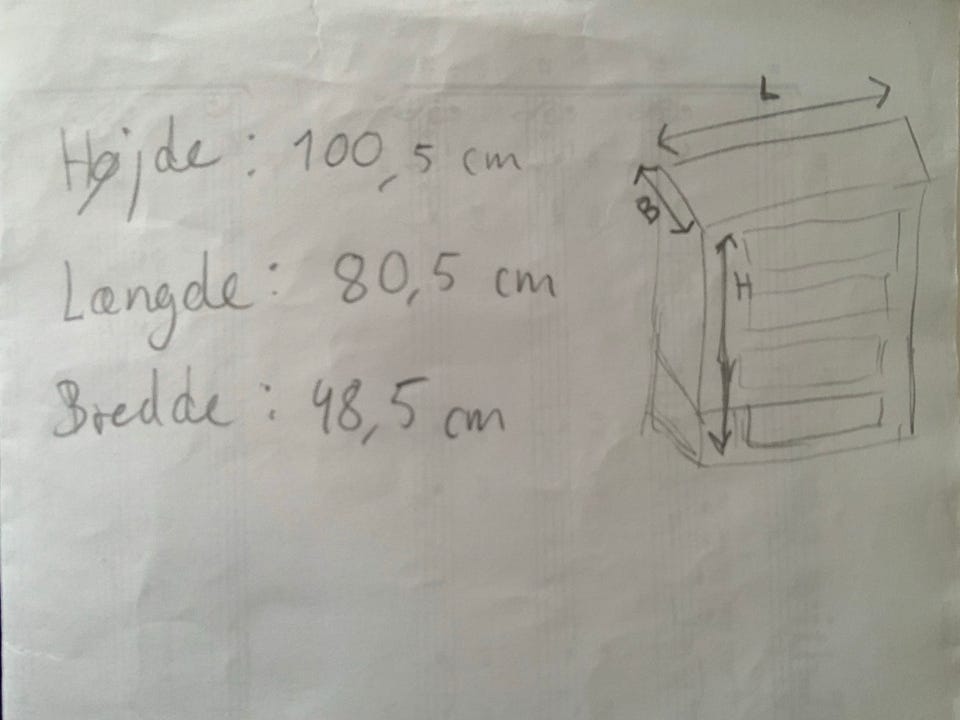 Højde: 100,5 cm
Længde: 80,5 cm
Bredde: 48,5 cm
L
B
H